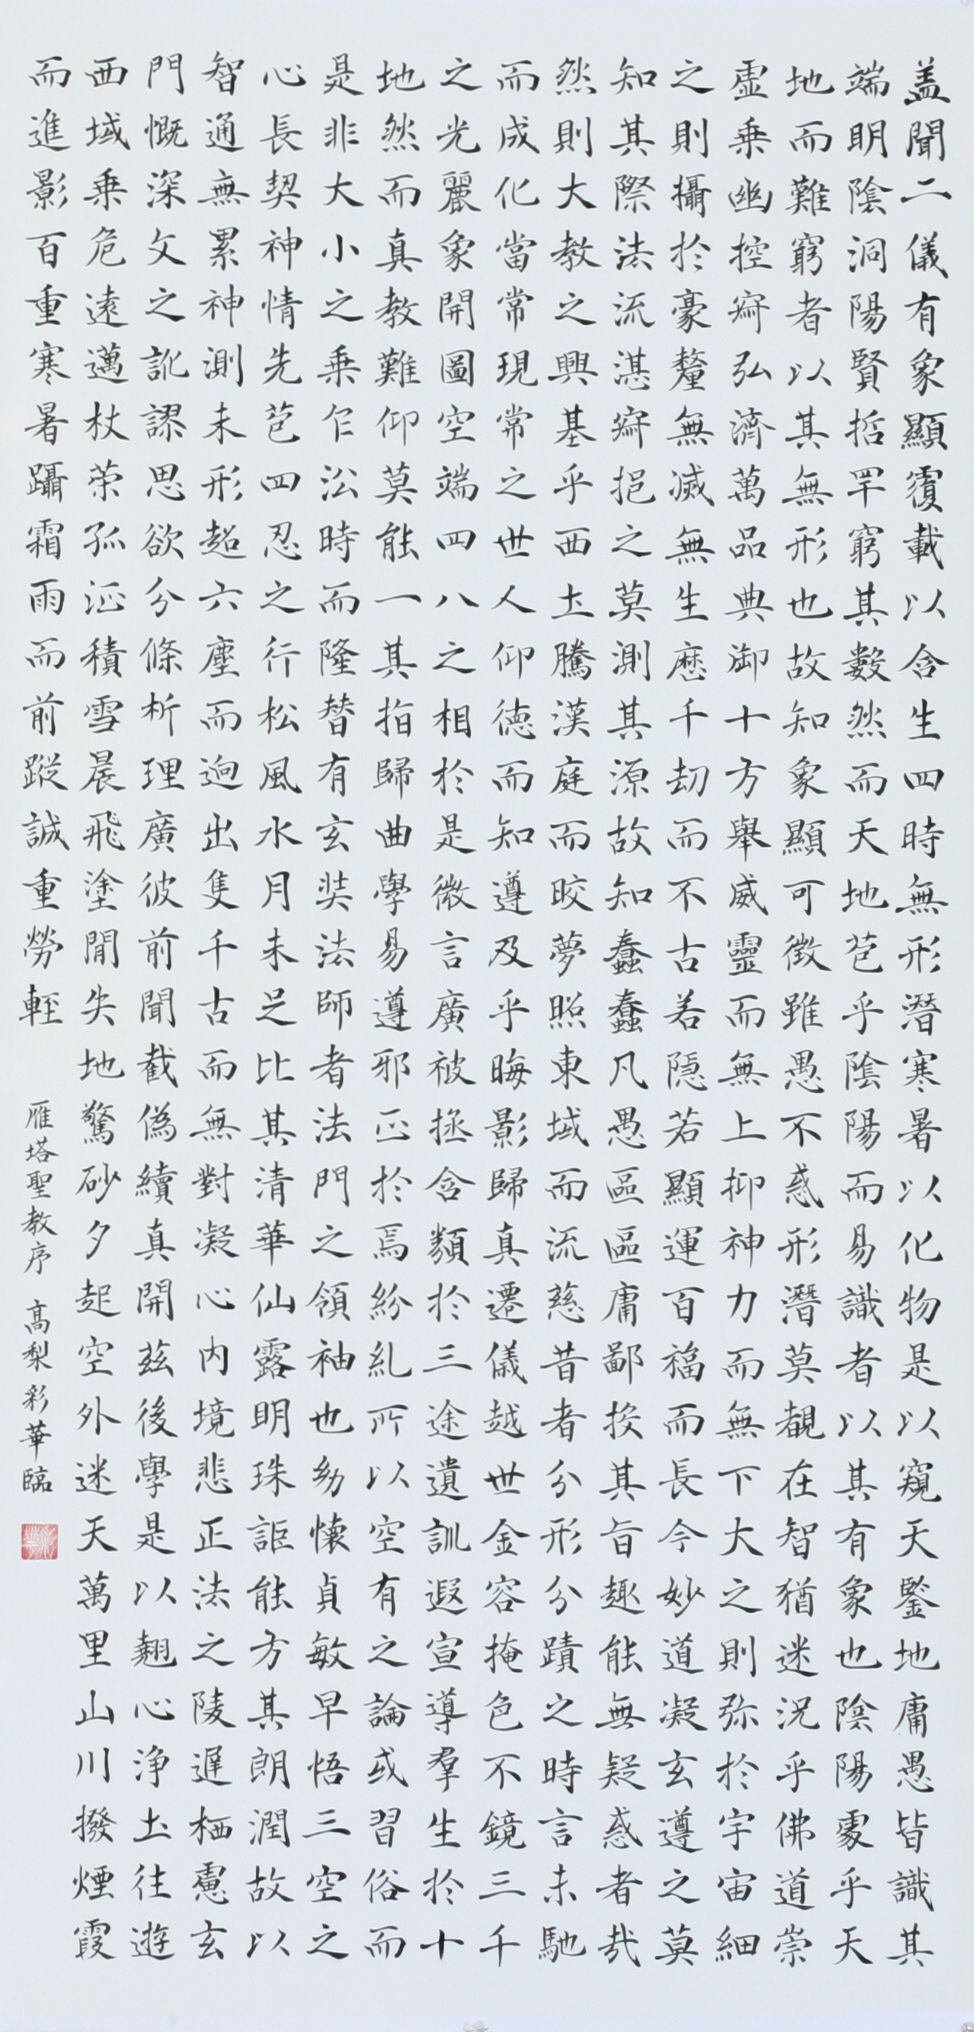 盖聞二儀有象顯覆載以含生四時無形潛寒暑以化物是以窺天鑒地庸愚皆識其
端明陰洞陽賢哲罕窮其數然而天地苞乎陰陽而易識者以其有象也陰陽處乎天
地而難窮者以其無形也故知象顯可徵雖愚不惑形潛莫覩在智猶迷況乎佛道崇
虛乘幽控寂弘濟萬品典御十方舉威靈而無上抑神力而無下大之則弥於宇宙細
之則攝於豪釐無滅無生歷千劫而不古若隱若顯運百福而長今妙道凝玄遵之莫
知其際法流湛寂挹之莫測其源故知蠢蠢凡愚區區庸鄙投其旨趣能無疑惑者哉
然則大教之興基乎西土騰漢庭而皎夢照東域而流慈昔者分形分蹟之時言未馳
而成化當常現常之世人仰徳而知遵及乎晦影歸真遷儀越世金容掩色不鏡三千
之光麗象開圖空端四八之相於是微言廣被拯含類於三途遺訓遐宣導羣生於十
地然而真教難仰莫能一其指歸曲學易遵邪正於焉紛糺所以空有之論或習俗而
是非大小之乗乍沿時而隆替有玄奘法師者法門之領袖也幼懐貞敏早悟三空之
心長契神情先苞四忍之行松風水月未足比其清華仙露明珠詎能方其朗潤故以
智通無累神測未形超六塵而迥出隻千古而無對凝心内境悲正法之陵遲栖慮玄
門慨深文之訛謬思欲分條析理廣彼前聞截偽續真開茲後學是以翹心浄土往遊
西域乗危遠邁杖策孤征積雪晨飛塗閒失地驚砂夕起空外迷天萬里山川撥煙霞
而進影百重寒暑躡霜雨而前蹤誠重勞輕
雁塔聖教序 高梨彩華臨
彩華